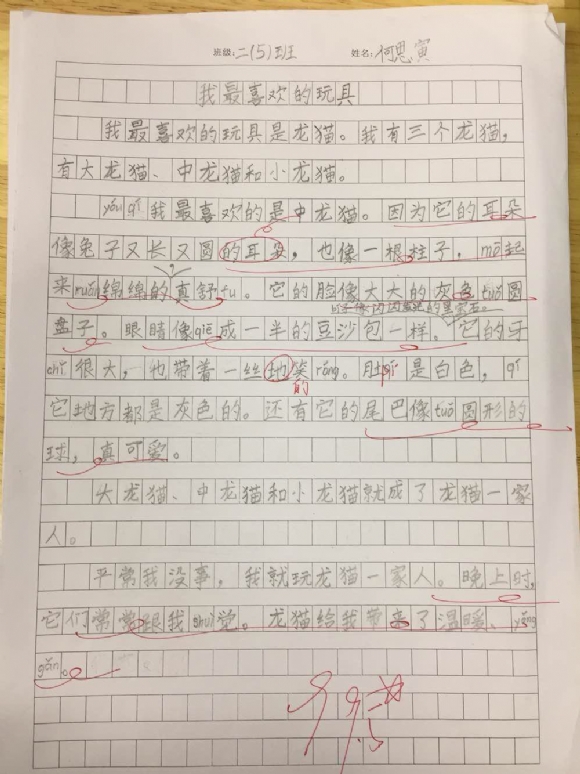 班级:二(5)班 姓名:何思寅
我最喜欢的玩具
我最喜欢的玩具是龙猫。我有三个龙猫,
有大龙猫、中龙猫和小龙猫。
yóu qí 我最喜欢的是中龙猫。因为它的耳朵
像兔子又长又圆的耳朵,也像一根柱子,mō起
来ruǎn绵绵的真舒fu。它的脸像大大的灰色tuǒ圆
盘子。眼睛像qiē成一半的豆沙包一样。它的牙
chǐ很大,也带着一丝地笑róng。肚pí是白色,qí
的
它地方都是灰色的。还有它的尾巴像tuǒ圆形的
球,真可爱。
大龙猫、中龙猫和小龙猫就成了龙猫一家
人。
平常我没事,我就玩龙猫一家人。晚上时,
它们常常跟我shuì觉。龙猫给我带来了温暖、yǒng
gǎn。